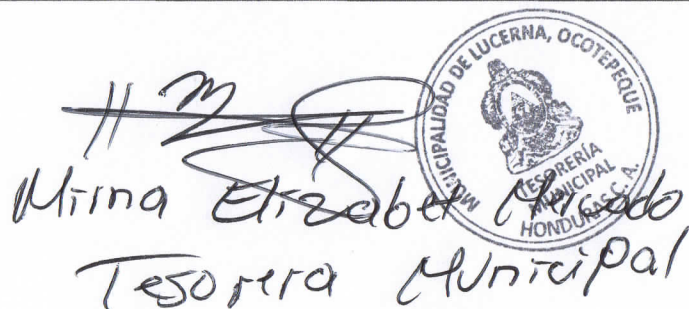 MUNICIPALIDAD DE LUCERNA, OCOTEPEQUE
TESORERÍA
MUNICIPAL
HONDURAS, C. A.
Mirna Elizabet Mercado
Tesorera Municipal